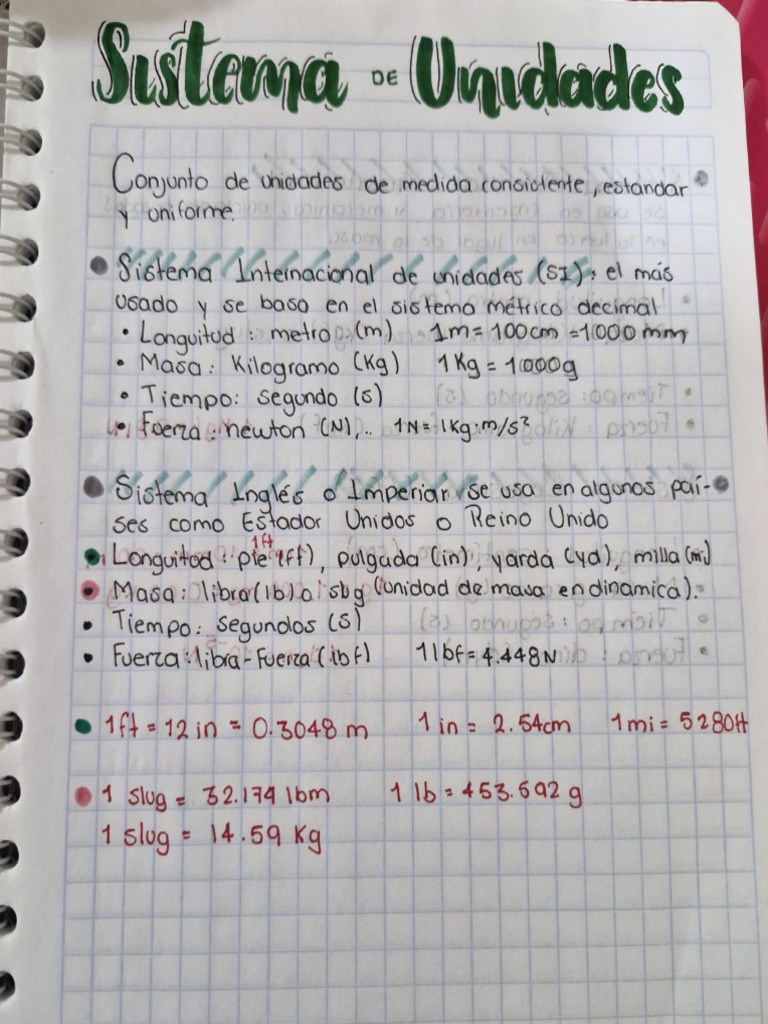 Sistema DE Unidades
Conjunto de unidades de medida consistente, estandar
y uniforme.
Sistema Internacional de unidades (SI): el más
usado y se basa en el sistema métrico decimal
• Longuitud: metro (m) 1m = 100cm = 1000 mm
• Masa: Kilogramo (Kg) 1Kg = 1000g
• Tiempo: segundo (s)
• Fuerza: newton (N),.. 1N = 1Kg·m/s²
Sistema Inglés o Imperiar se usa en algunos paí-
ses como Estador Unidos o Reino Unido
1ft
• Longuitud: pie (ft), pulgada (in), yarda (yd), milla (mi)
• Masa: libra (lb) o slug (unidad de masa en dinamica).
• Tiempo: segundos (s)
• Fuerza: libra-Fuerza (lbf) 1 lbf = 4.448N
• 1ft = 12 in = 0.3048 m 1 in = 2.54cm 1mi = 5280ft
• 1 slug = 32.174 lbm 1 lb = 453.592 g
1 slug = 14.59 Kg